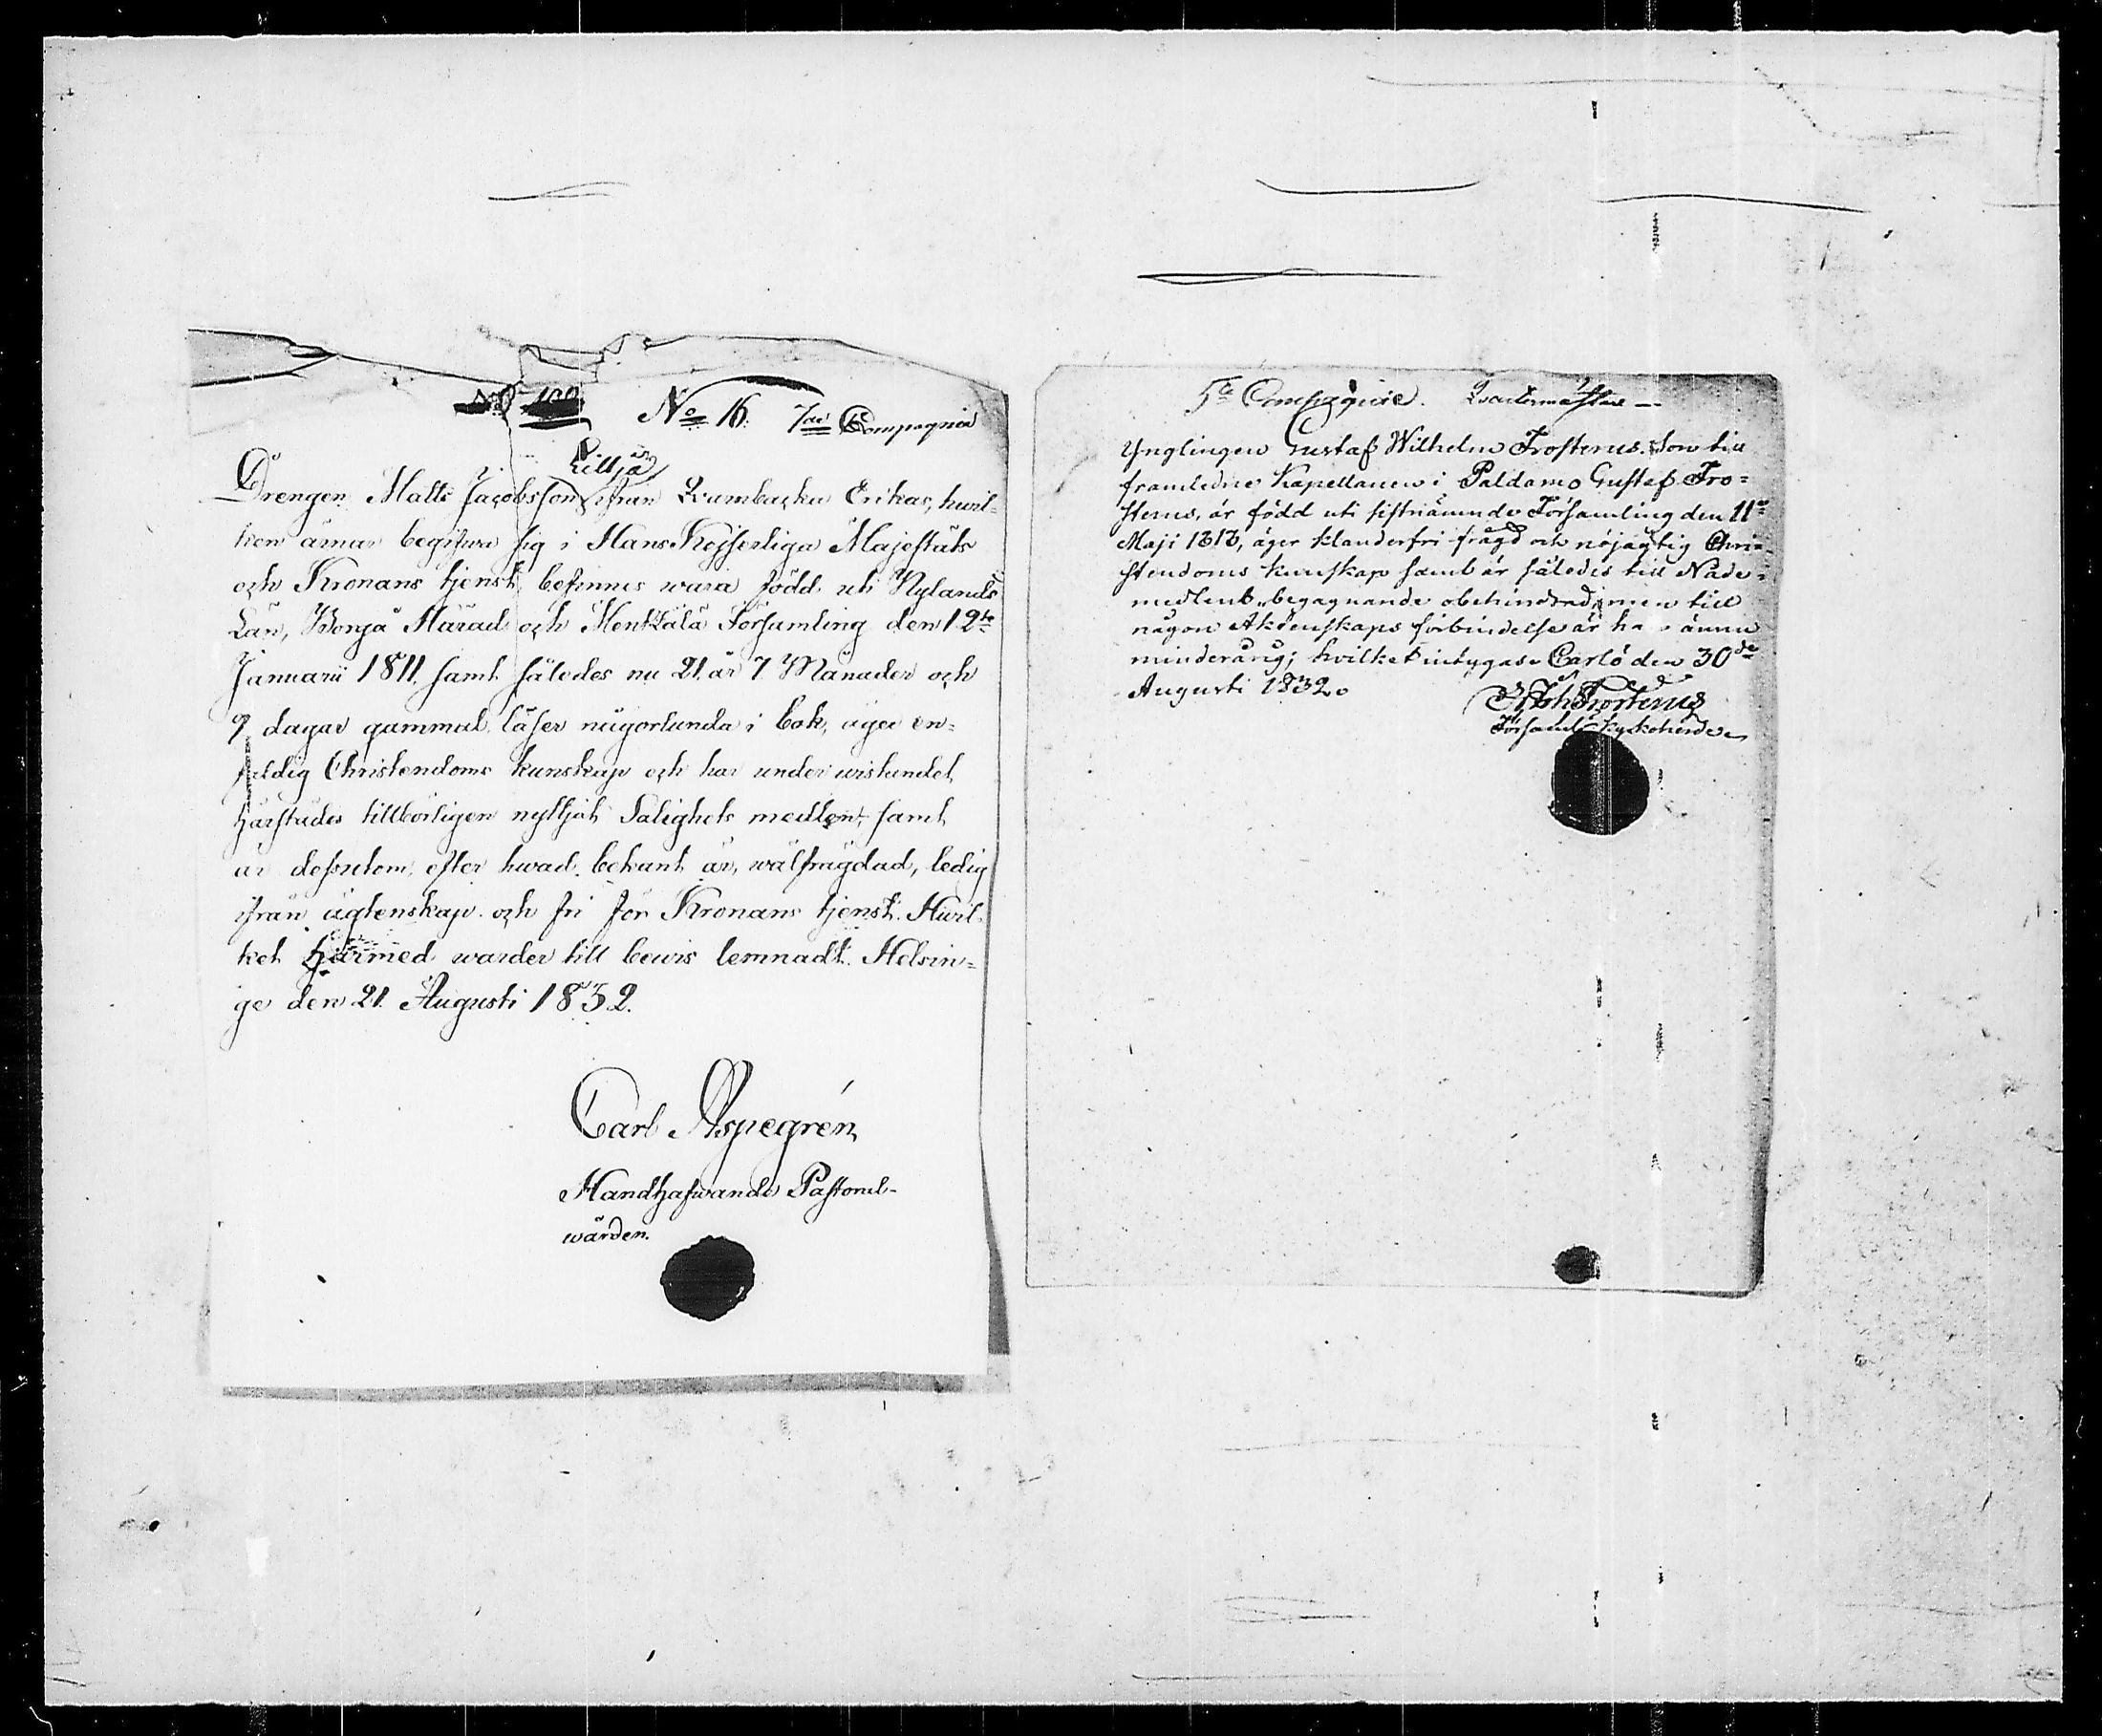 No 16. 7de Compagnie
Lillja
Drengen Matts Jacobsson ifrån Qvarnbacka Erikas, hwil-
ken ämnar begifwa sig i Hans Kejserliga Majestäts
och Kronans tjenst, befinnes wara född uti Nylands
Län, Borgå Härad och Mentzälä Församling den 12te
Januarii 1811, samt således nu 21 år 7 Månader och
9 dagar gammal, läser någorlunda i bok, äger en-
faldig Christendoms kunskap och har under wistandet
härstädes tillbörligen nyttjat Salighets medlen, samt
är dessutom, efter hwad bekant är, wälfrägdad, ledig
ifrån ägtenskap och fri för Kronans tjenst. Hwil-
ket härmed warder till bewis lemnadt. Helsin-
ge den 21 Augusti 1832.
Carl Aspegrén
Handhafwande Pastorals-
wården.
5te Compagnie. Qvartermästare
Ynglingen Gustaf Wilhelm Frosterus, Son till
framledne Kapellanen i Paldamo Gustaf Fro-
sterus, är född uti sistnämnde Församling den 11te
Maji 1813, äger klanderfri frägd och nöjagtig Chri-
stendoms kunskap samt är således till Nade-
medlens begagnande obehindrad; men till
någon Äktenskaps förbindelse är han ännu
minderårig; hvilket intygas. Carlö den 30de
Augusti 1832.
Joh Frosterus
Församl. Kyrkoherde